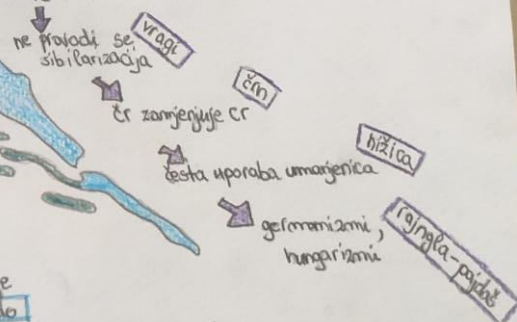 ne provodi se
sibilarizacija
vragi
čr zamjenjuje cr
črn
česta uporaba umanjenica
hižica
germanizmi,
hungarizmi
rajngla-pajdaš